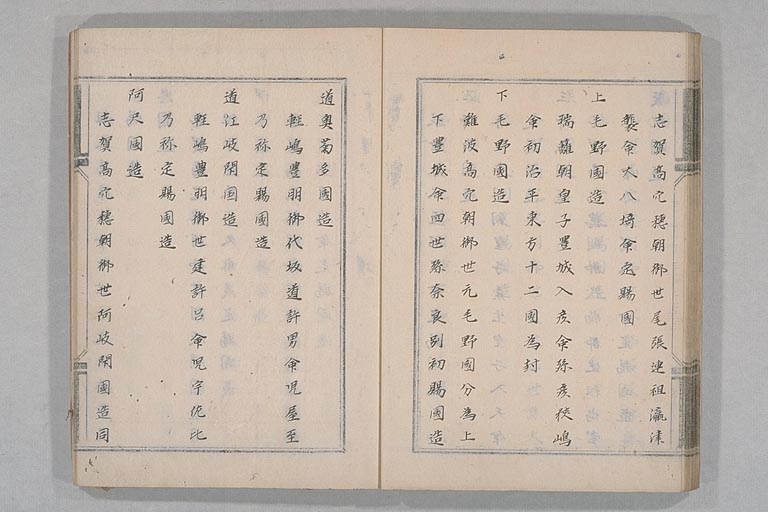 志賀高穴穂朝御世尾張連祖瀛津
襲命大八埼命定賜國
上毛野國造
瑞籬朝皇子豊城入彦命孫彦狭嶋
命初治平東方十二國為封
下毛野國造
難波高穴朝御世元毛野國分為上
下豊城命四世孫奈良別初賜國造
道奥菊多國造
軽嶋豊明御代坂道許男命児屋主
乃祢定賜國造
道江岐閇国造
軽嶋豊明御世建許呂命児宇佐比
乃祢定賜國造
阿尺國造
志賀高穴穂朝御世阿岐閇國造同